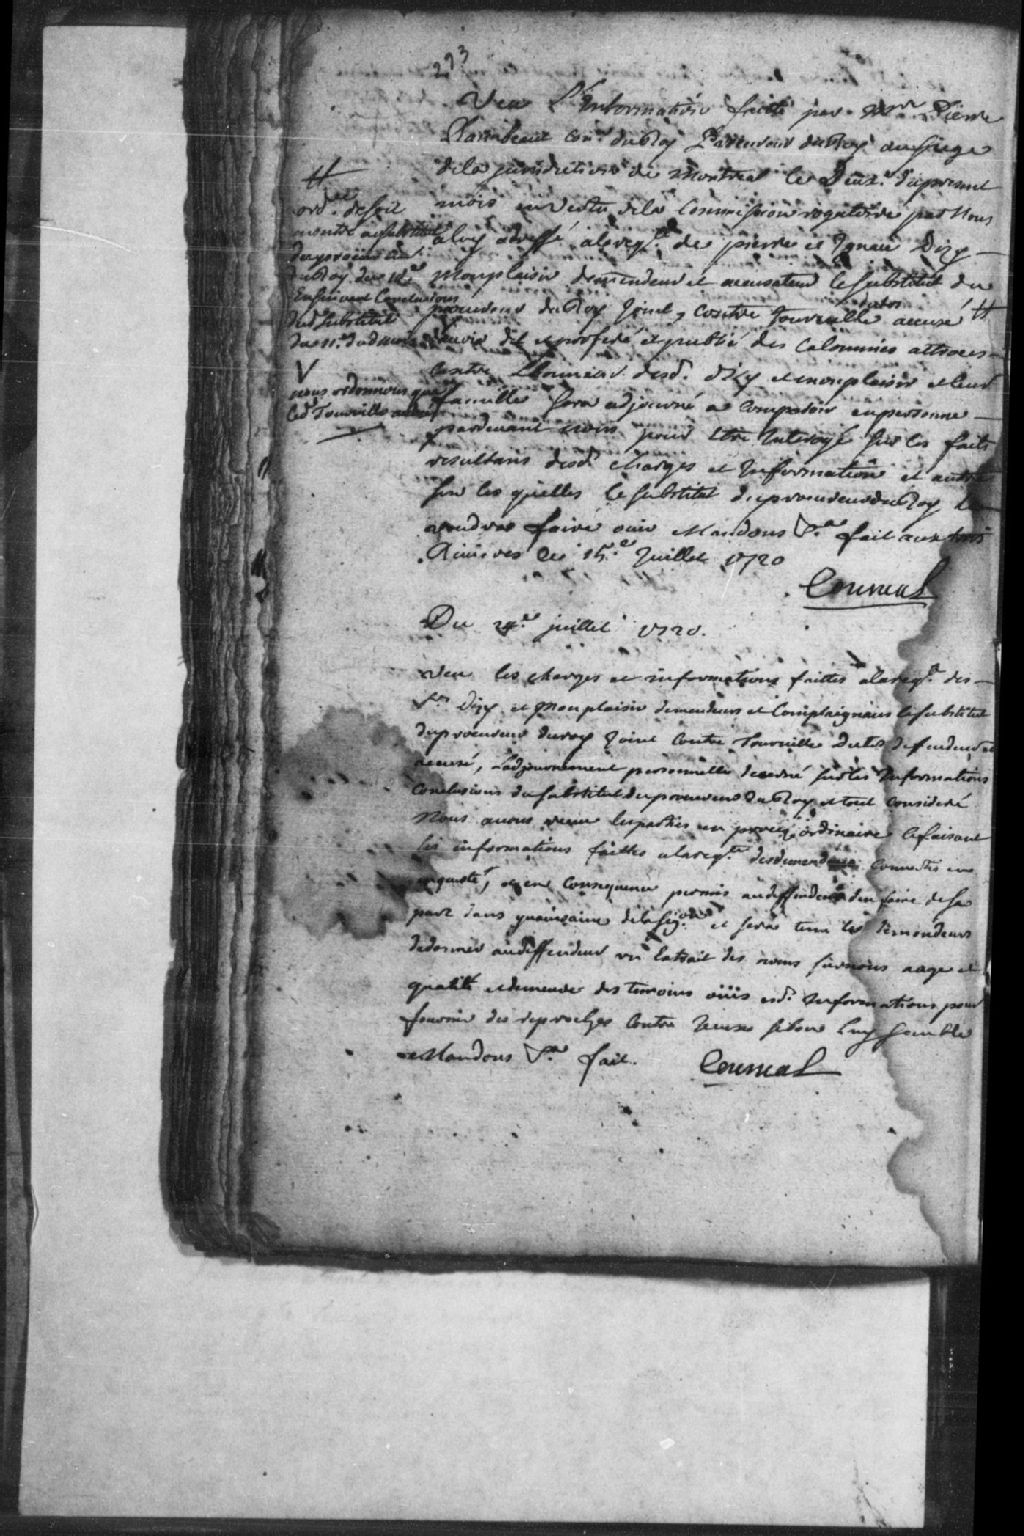 293
Veu L'Information faitte par Mre Pierre
Raimbault Conr. du Roy Procureur du Roy au siege
de la jurisdiction de Montreal le Deuxe. du present
mois en Vertu de la Commission rogatoire par Nous
a luy adressé a la reqte. de pierre et Ignace Dizy
Monplaisir demandeur et accusateur le substitut du
procureur du Roy Joint, Contre Tourville accusé #
davoir dit et proferé et publié des Calomnies attroces
contre L'honneur desd. dizy et monplaisir et leur
famille sera adjourné a Comparoir en personne
pardevant nous pour Etre Interogé sur les faits
resultans desd. Charges et Information et autres
sur les quelles le substitut du procureur du Roy le
voudra faire ouir Mandons &a fait aux trois
Rivieres le 15e Juillet 1720
Courval
#
ordce de soit
montré au substitut
du procureur
du Roy du 12e
Ensuivant Conclusions
dud substitut
V
nous ordonnons que
led Tourville
Du 24e juillet 1720.
Veu les charges et informations faittes a la reqte. des
Srs Dizy et Monplaisir demandeurs et Complaignans le substitut
du procureur du roy Joint Contre Tourville deffendeur et
accusé, L'adjournement personnelle decerné sur les Informations
Conclusions du substitut du procureur du Roy et tout consideré
Nous avons receu les parties en procez ordinaire ce faisant
les informations faittes a la reqte. desd demandeurs converties en
enqueste, et en consequence permis au deffendeur den faire de sa
part dans quinzaine et seront tenu les demandeurs
de donner au deffendeur un Extrait des noms surnoms aage et
qualité et demeure des temoins ouis esd. Informations pour
fournir des reproches contre Iceux si bon luy semble
Mandons &a fait. Courval